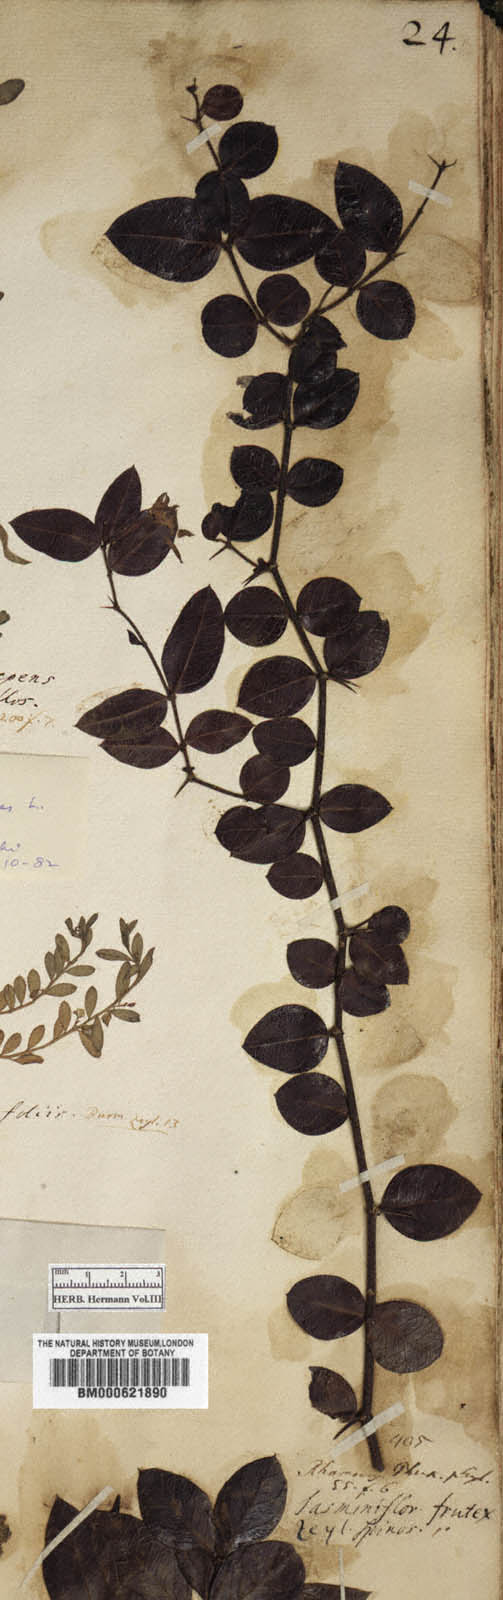 24.
epens
flos.
200 f. 7.
es L.
10-82
foliis. Burm zeyl. 13
mm 1 2 3
HERB. Hermann Vol.III
THE NATURAL HISTORY MUSEUM, LONDON
DEPARTMENT OF BOTANY
BM000621890
405
Rhamnus Pluk. phyt.
55. f. 6
Jasminiflor. frutex
Zeyl. Spinos.